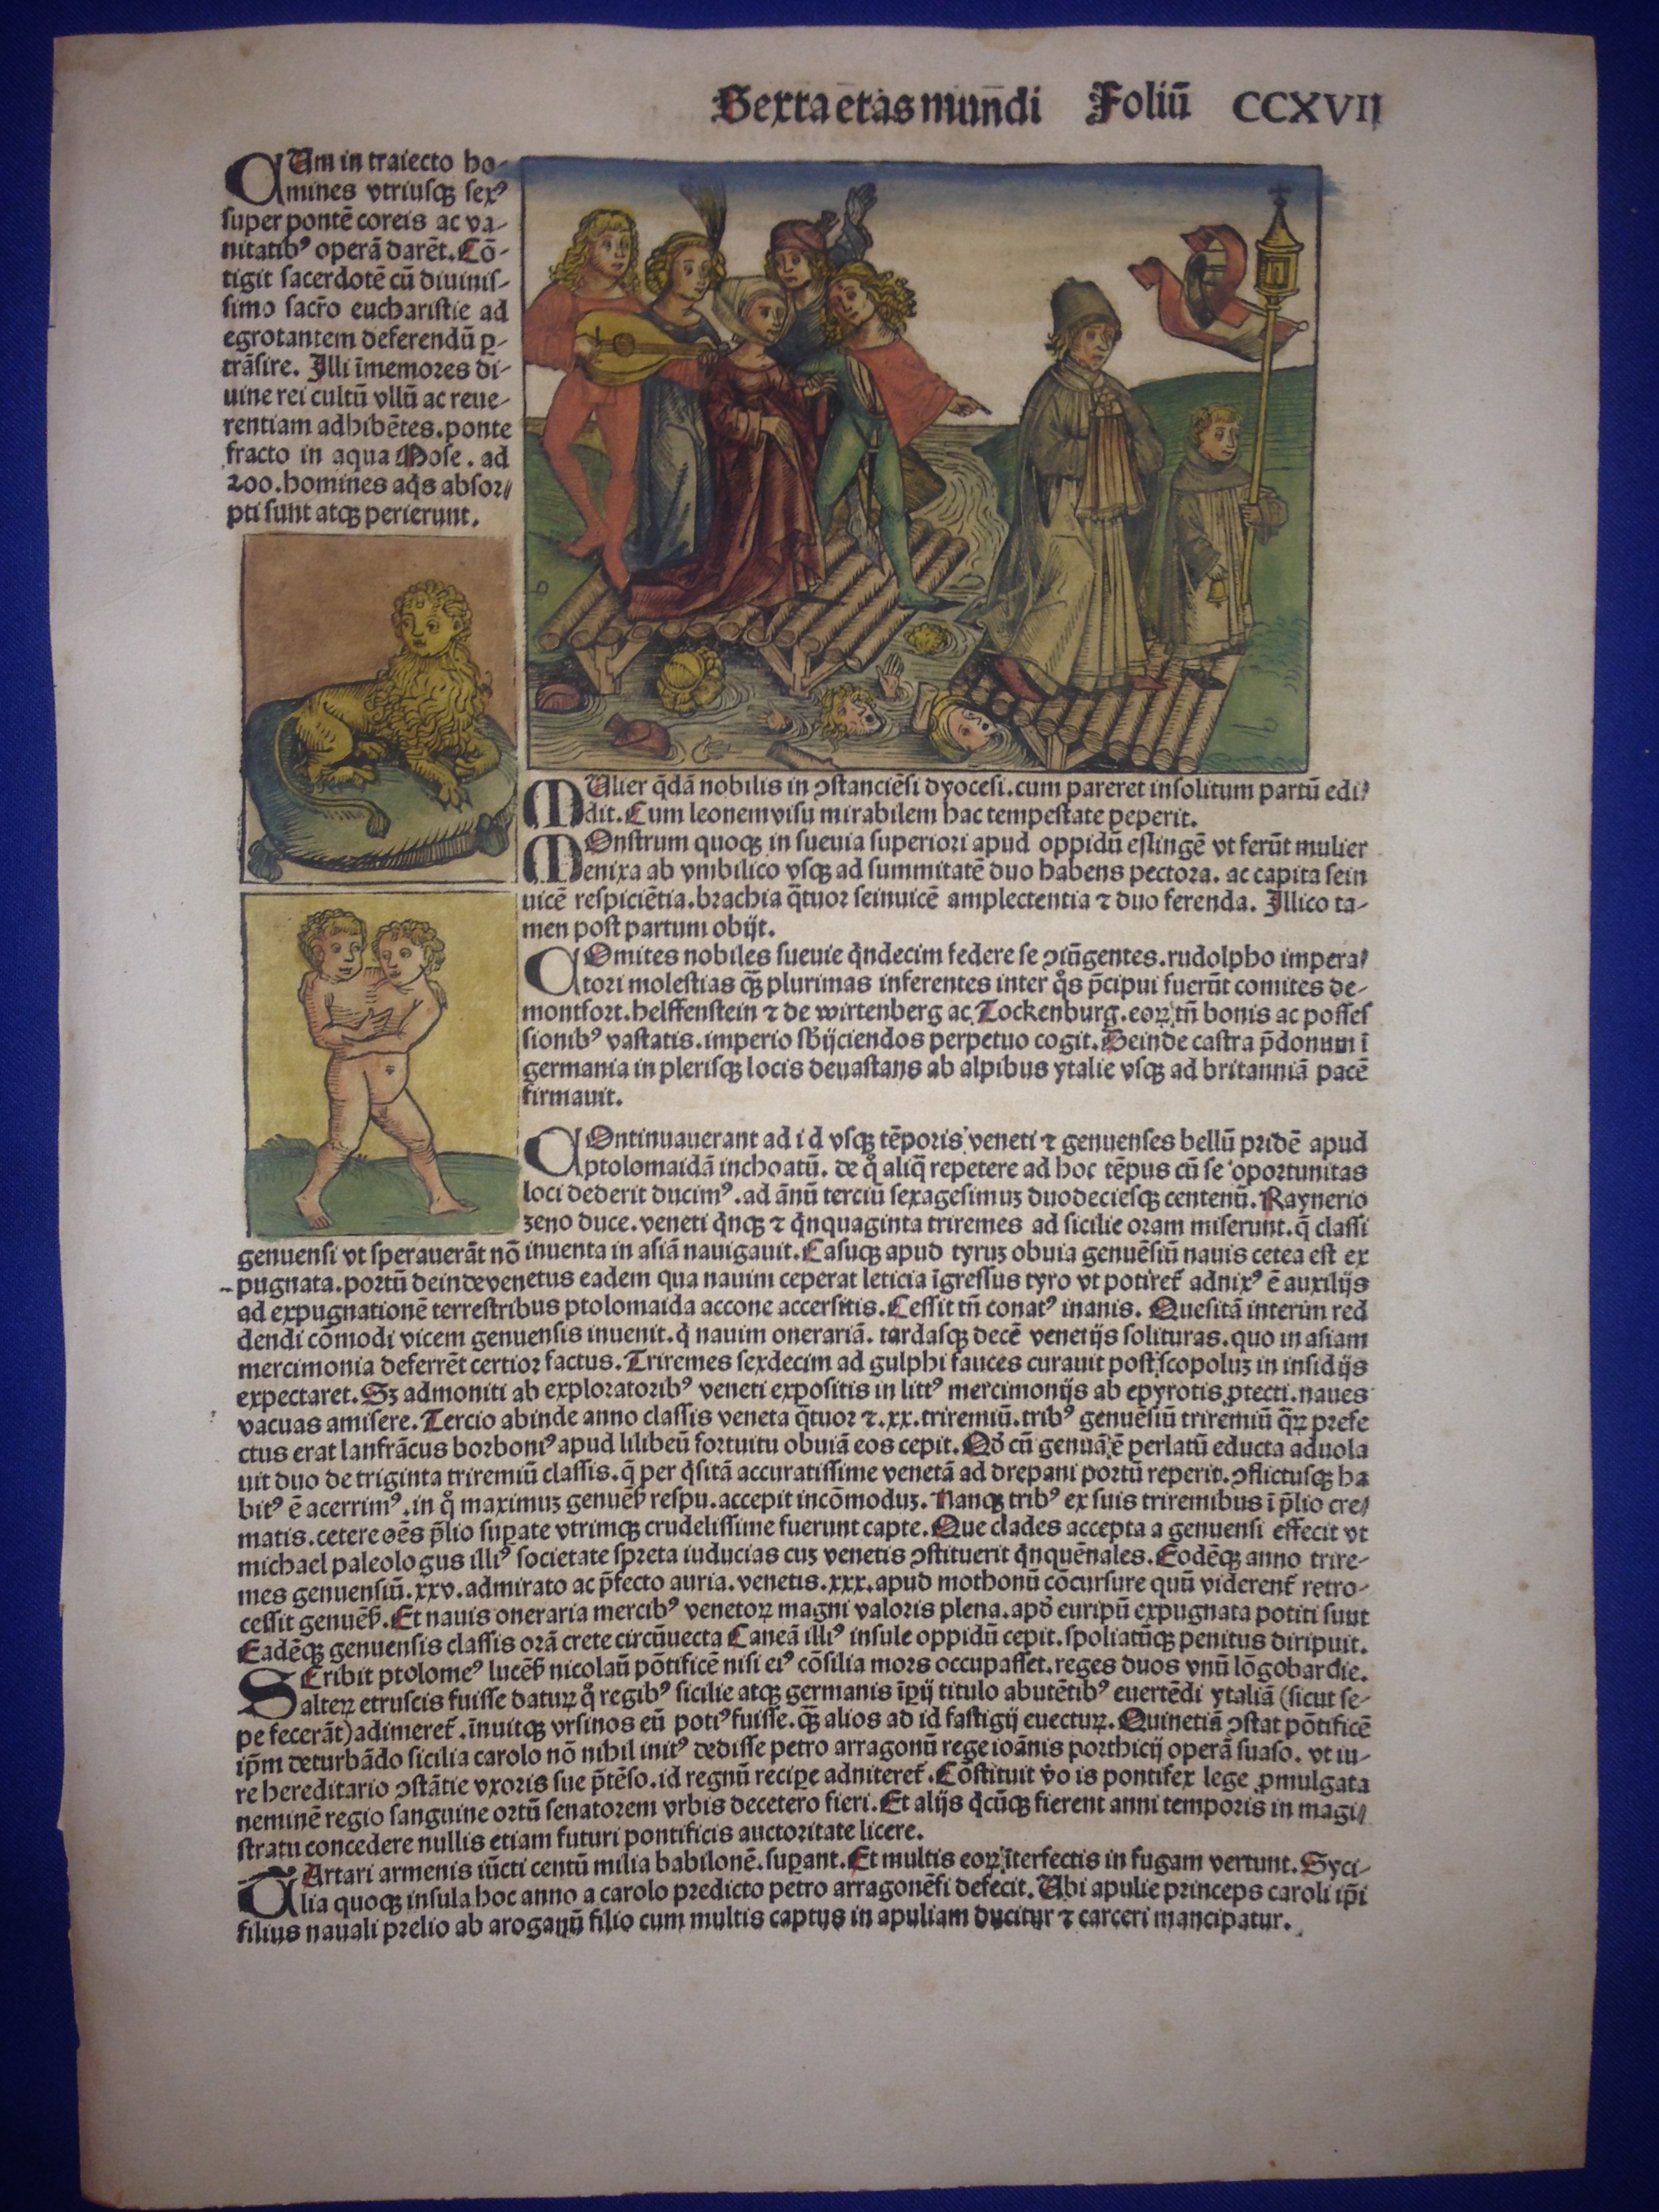 Sexta etas mundi Foliū CCXVII
CUm in traiecto ho-
mines vtriusqꝫ sexꝰ
super pontē coreis ac va-
nitatibꝰ operā darēt. Cō-
tigit sacerdotē cū diuinis-
simo sacr̄o eucharistie ad
egrotantem deferendū ꝑ-
trāsire. Illi īmemores di-
uine rei cultū vllū ac reue-
rentiam adhibētes. ponte
fracto in aqua Mose. ad
200. homines aq̄s absor-
pti sunt atqꝫ perierunt.
MUlier q̄dā nobilis in ꝯstanciēsi dyocesi. cum pareret insolitum partū edi-
dit. Cum leonem visu mirabilem hac tempestate peperit.
MOnstrum quoqꝫ in sueuia superiori apud oppidū eslingē vt ferūt mulier
enixa ab vmbilico vsqꝫ ad summitatē duo habens pectora. ac capita sein
uicē respiciētia. brachia q̄tuor seinuicē amplectentia ⁊ duo ferenda. Illico ta-
men post partum obijt.
COmites nobiles sueuie q̇ndecim federe se ꝯiūgentes. rudolpho impera-
tori molestias qꝫ̄ plurimas inferentes inter q̊s p̄cipui fuerūt comites de-
montfort. helffenstein ⁊ de wirtenberg ac Tockenburg. eoꝝ tn̄ bonis ac posses
sionibꝰ vastatis. imperio sb̄ijciendos perpetuo cogit. Deinde castra p̄donum ī
germania in plerisqꝫ locis deuastans ab alpibus ytalie vsqꝫ ad britanniā pacē
firmauit.
COntinuauerant ad id vsqꝫ tēporis veneti ⁊ genuenses bellū pridē apud
ptolomaidā inchoatū. de q̊ aliq̄ repetere ad hoc tēpus cū se oportunitas
loci dederit ducimꝰ. ad ānū terciū sexagesimuꝫ duodeciesqꝫ centenū. Raynerio
zeno duce. veneti q̇nqꝫ ⁊ q̇nquaginta triremes ad sicilie oram miserunt. q̄ classi
genuensi vt sperauerāt nō inuenta in asiā nauigauit. Casuqꝫ apud tyruꝫ obuia genuēsiū nauis cetea est ex
pugnata. portū deinde venetus eadem qua nauim ceperat leticia īgressus tyro vt potiret̄ adnixꝰ ē auxilijs
ad expugnationē terrestribus ptolomaida accone accersitis. Cessit tn̄ conatꝰ inanis. Quesitā interim red
dendi cōmodi vicem genuensis inuenit. q̇ nauim onerariā. tardasqꝫ decē venetijs solituras. quo in asiam
mercimonia deferrēt certior factus. Triremes sexdecim ad gulphi fauces curauit post scopoluꝫ in insidijs
expectaret. Sꝫ admoniti ab exploratoribꝰ veneti expositis in littꝰ mercimonijs ab epyrotis ꝓtecti. naues
vacuas amisere. Tercio abinde anno classis veneta q̄tuor ⁊. xx. triremiū. tribꝰ genuēsiū triremiū q̄ꝝ prefe
ctus erat lanfrācus borboniꝰ apud lilibeū fortuitu obuiā eos cepit. Qd̄ cū genuā ē perlatū educta aduola
uit duo de triginta triremiū classis. q̄ per q̇sitā accuratissime venetā ad drepani portū reperit. ꝯflictusqꝫ ha
bitꝰ ē acerrimꝰ. in q̊ maximuꝫ genuēs̄ respu. accepit incōmoduꝫ. Nanqꝫ tribꝰ ex suis triremibus ī p̄lio cre-
matis. cetere oēs p̄lio supate vtrimqꝫ crudelissime fuerunt capte. Que clades accepta a genuensi effecit vt
michael paleologus illiꝰ societate spreta inducias cuꝫ venetis ꝯstituerit q̇nquēnales. Eodēqꝫ anno trire-
mes genuensiū. xxv. admirato ac p̄fecto auria. venetis. xxx. apud mothonū cōcursure quū viderent̄ retro-
cessit genuēs̄. Et nauis oneraria mercibꝰ venetoꝝ magni valoris plena. apd̄ euripū expugnata potiti sunt
Eadēqꝫ genuensis classis orā crete circūuecta Caneā illiꝰ insule oppidū cepit. spoliatūqꝫ penitus diripuit.
SCribit ptolomeꝰ lucēs̄ nicolaū pōtificē nisi eiꝰ cōsilia mors occupasset. reges duos vnū lōgobardie.
alteꝝ etruscis fuisse datuꝝ q̊ regibꝰ sicilie atqꝫ germanis īpij titulo abutētibꝰ euertēdi ytaliā (sicut se-
pe fecerāt) adimeret̄. īnuitqꝫ vrsinos eū potiꝰ fuisse. qꝫ̄ alios ad id fastigij euectuꝝ. Quinetiā ꝯstat pōtificē
ip̄m deturbādo sicilia carolo nō nihil initꝰ dedisse petro arragonū rege ioānis porthicij operā suaso. vt iu-
re hereditario ꝯstātie vxoris sue p̄tēso. id regnū recipe adniteret̄. Cōstituit v̊o is pontifex lege ꝓmulgata
neminē regio sanguine ortū senatorem vrbis decetero fieri. Et alijs q̇cūqꝫ fierent anni temporis in magi-
stratu concedere nullis etiam futuri pontificis auctoritate licere.
TArtari armenis iūcti centū milia babilonē. suꝑant. Et multis eoꝝ īterfectis in fugam vertunt. Syci-
lia quoqꝫ insula hoc anno a carolo predicto petro arragonēsi defecit. Ubi apulie princeps caroli ip̄i
filius nauali prelio ab aroganū filio cum multis captus in apuliam ducitur ⁊ carceri mancipatur.